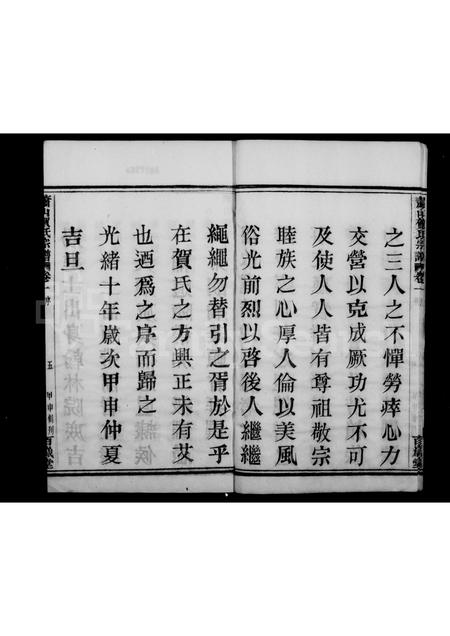 之三人之不憚勞瘁心力
交營以克成厥功尤不可
及使人人皆有尊祖敬宗
睦族之心厚人倫以美風
俗光前烈以啓後人繼繼
繩繩勿替引之胥於是乎
在賀氏之方興正未有艾
也迺爲之序而歸之
光緒十年歲次甲申仲夏
吉旦
蕭山賀氏宗譜
卷一
五
甲申輯刊
百歲堂